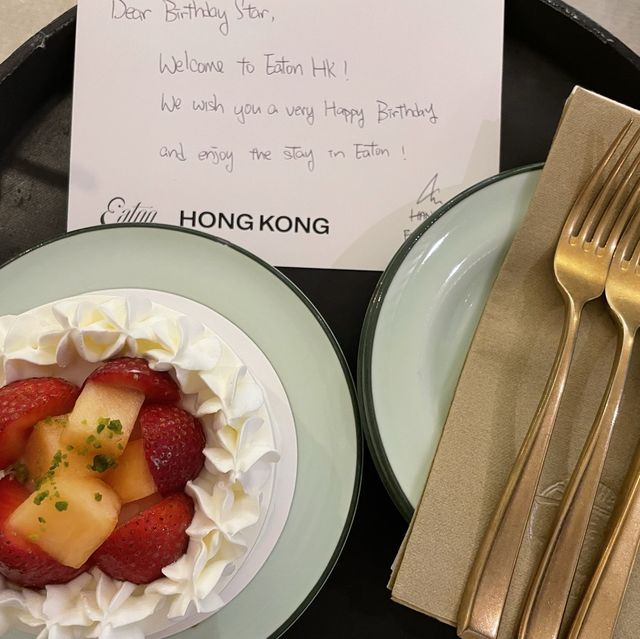 Dear Birthday Star,
Welcome to Eaton HK!
We wish you a very Happy Birthday
and enjoy the stay in Eaton!
Eaton HONG KONG